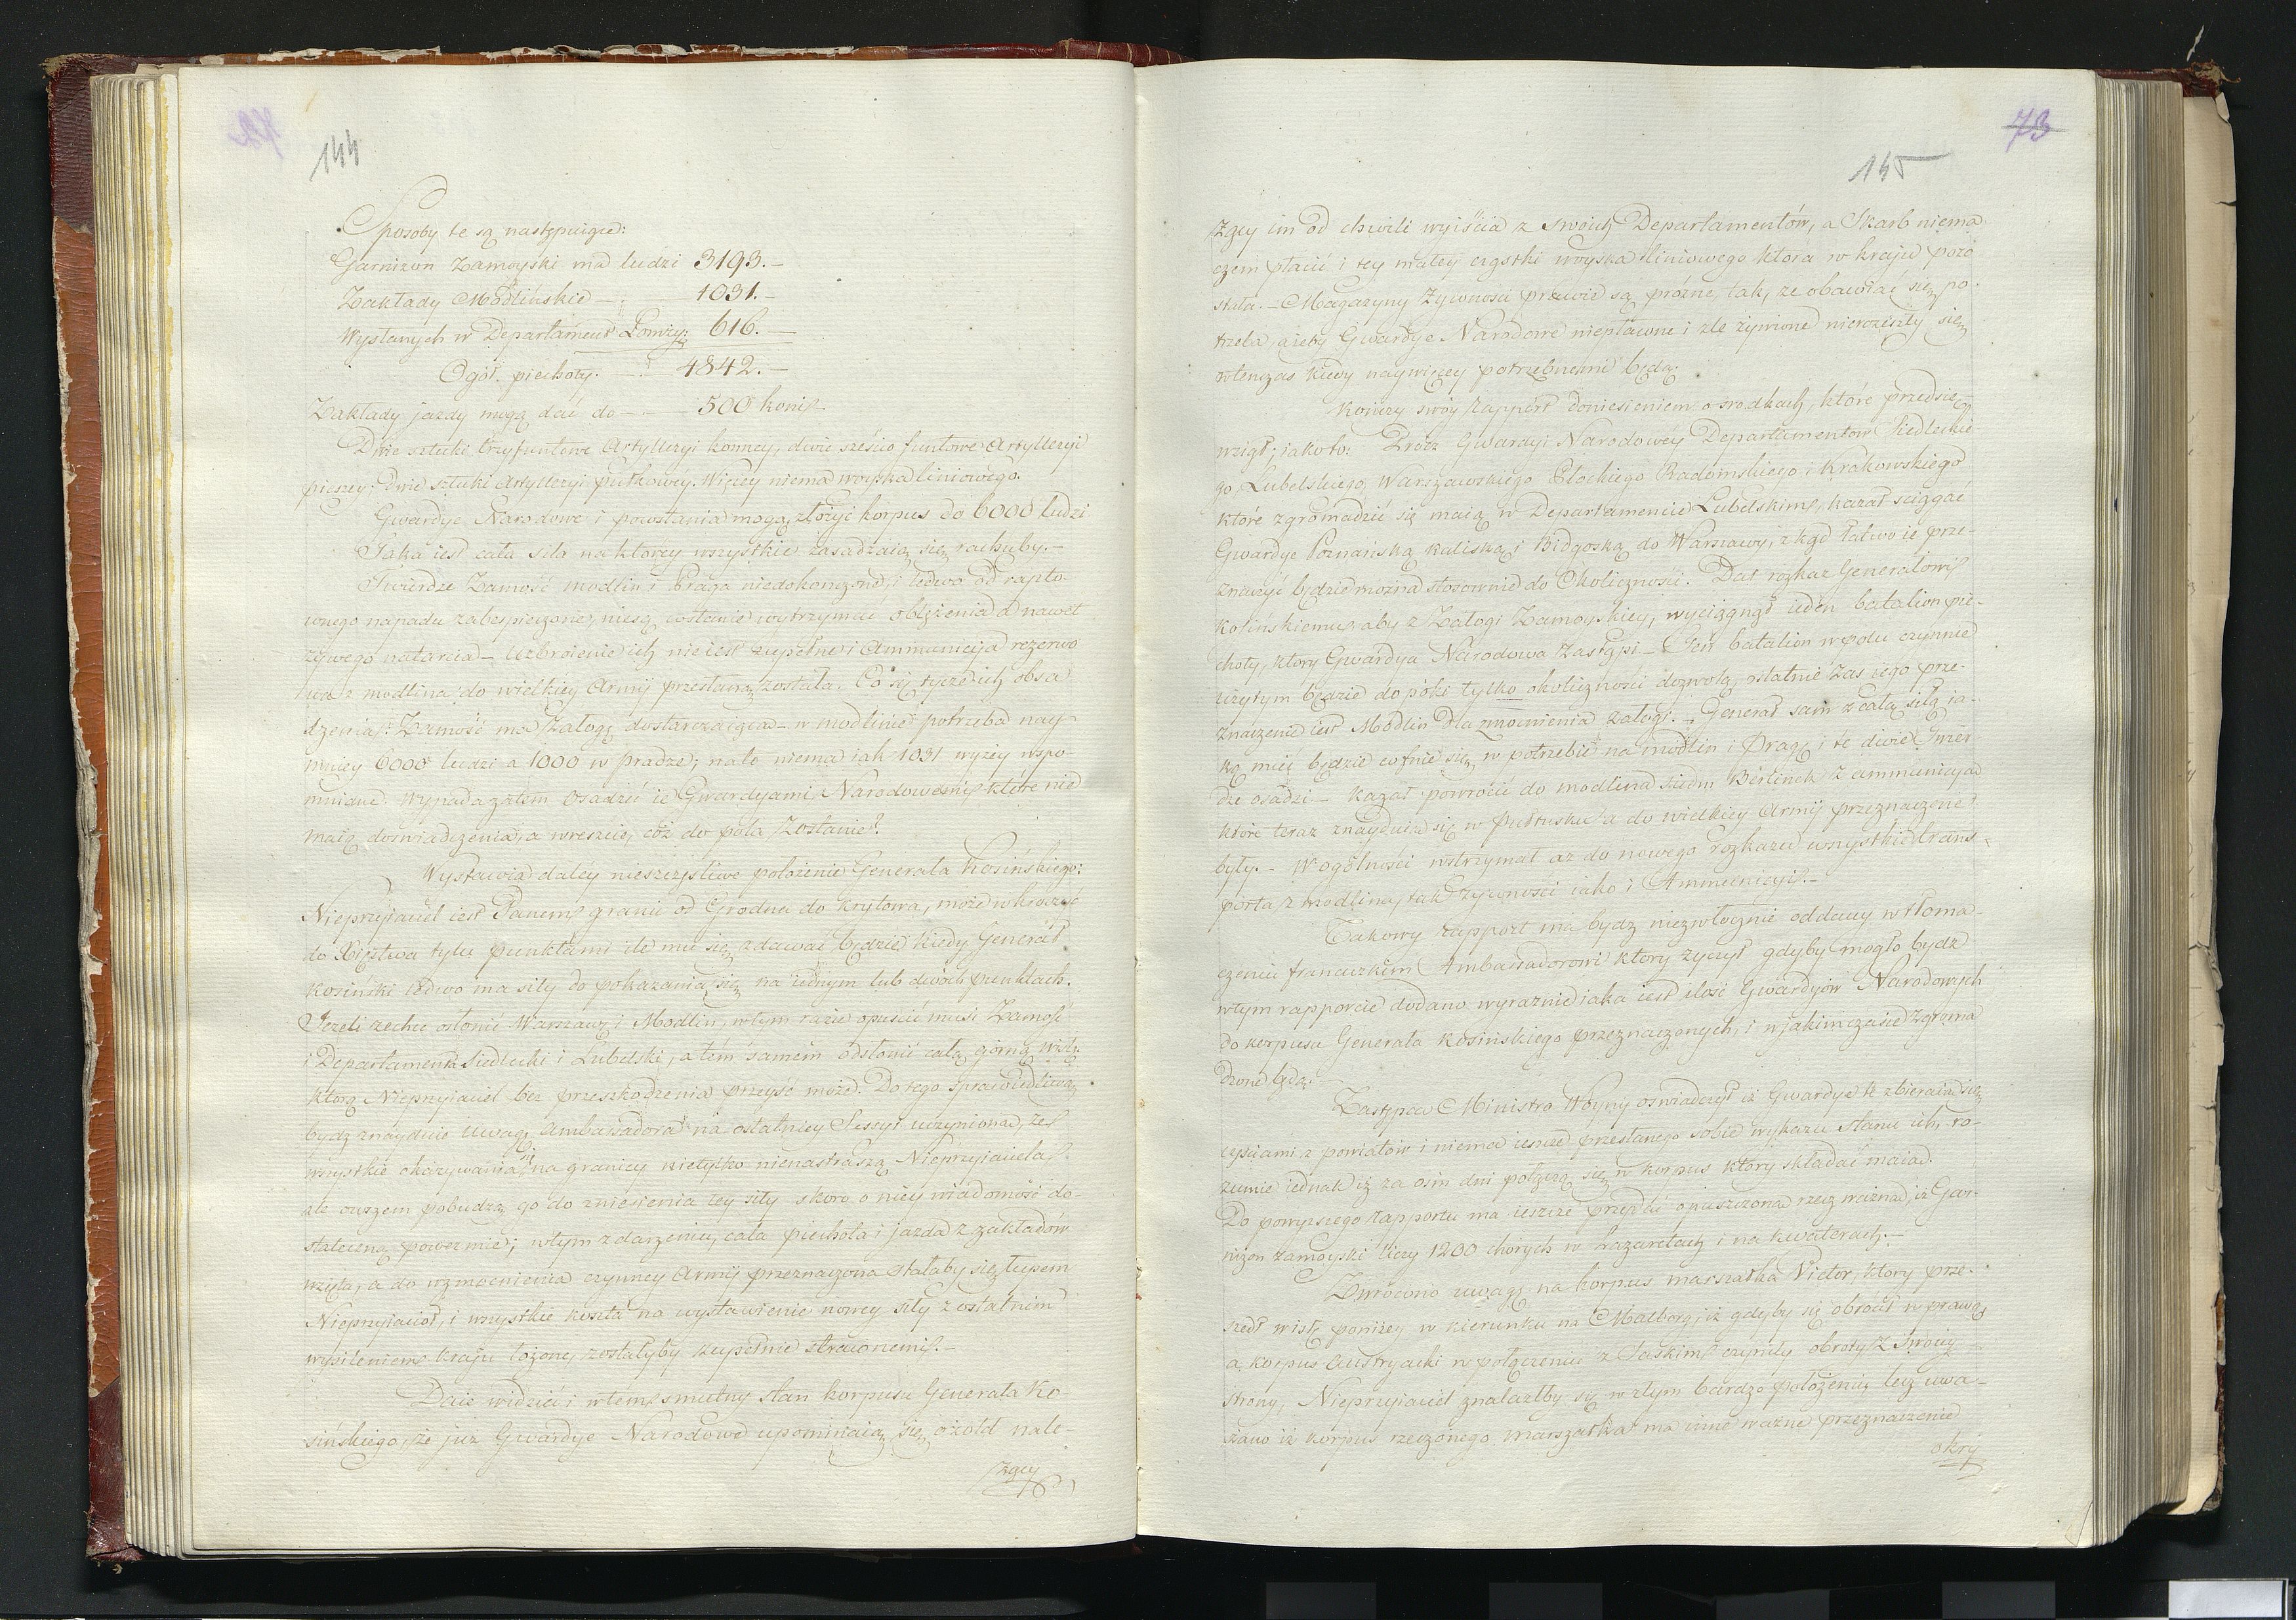 144
Sposoby te są następuiące:
Garnizon Zamoyski ma ludzi 3193.—
Zakłady Modlińskie — 1031.—
Wysłanych w Departament Łomży: 616.—
Ogół piechoty. — 4842.—
Zakłady jazdy mogą dać do — 500 koni
Dwie sztuki trzyfuntowe Artylleryi konney, dwie sześcio funtowe Artylleryi
pieszey; dwie sztuki Artylleryi pułkowey. Więcey niema woyska liniowego.
Gwardye Narodowe i powstania mogą złożyć korpus do 6000 ludzi
Taka iest cała siła na ktorey wszystkie zasadzaią się rachuby.—
Twierdze Zamość Modlin i Praga niedokończone, i ledwo od rapto-
wnego napadu zabespieczone, niesą wstanie wytrzymać oblężenia a nawet
żywego natarcia — Uzbroienie ich nie iest zupełne i Ammunicya rezerwo
wa z Modlina do wielkiey Armij przesłana została. Co się tycze ich obsa
dzenia: Zamość ma Załogę dostarczaiącą — w Modlinie potrzeba nay
mniey 6000 ludzi a 1000 w Pradze; na to niema iak 1031 wyżey wspo-
mniane. Wypada zatem osadzić ie Gwardyami Narodowemi które nie
maią doswiadczenia, a wreszcie, cóż do pola zostanie?
Wystawia daley nieszczęsliwe położenie Generała Kosińskiego:
Nieprzyiaciel iest Panem granic od Grodna do Kryłowa, może wkroczyć
do Xięstwa tylu punktami ile mu się zdawać będzie kiedy Generał
Kosiński ledwo ma siły do pokazania się na iednym lub dwóch punktach.
Jeżeli zechce osłonić Warszawę i Modlin, w tym razie opuścić musi Zamość
i Departamenta Siedlecki i Lubelski, a tém samém odsłonić całą górną Wisłę,
którą Nieprzyiaciel bez przeszkodzenia przeyść może. Do tego sprawiedliwą
bydz znayduie uwagę Ambassadora na ostatniey Sessyi uczynioną, że
wszystkie okazywania się na granicy nietylko nienastraszą Nieprzyiaciela
ale owszem pobudzą go do zniesienia tey siły skoro o niey wiadomość do-
stateczną powezmie; w tym zdarzeniu, cała piechota i jazda z zakładów
wzięta, a do wzmocnienia czynney Armij przeznaczona stałaby się łupem
Nieprzyiacioł, i wszystkie koszta na wystawienie nowey siły z ostatnim
wysileniem kraju łożone, zostałyby zupełnie straconemi.—
Daie widzieć i w tem smutny stan korpusu Generała Ko-
sińskiego, że już Gwardye Narodowe upominaią się o żołd nale-
żący
73
145
żący im od chwili wyiścia z swoich Departamentów, a Skarb niema
czem płacić i tey małey cząstki woyska liniowego która w kraju pozo
stała.— Magazyny żywnosci prawie są prózne, tak, że obawiać się po-
trzeba ażeby Gwardye Narodowe niepłatne i zle żywione nierozeszły się
wtenczas kiedy naywięcey potrzebnemi będą.
Kończy swóy Rapport doniesieniem o srodkach, które przedsię-
wziął; iakoto: Prócz Gwardyi Narodowey Departamentów Siedleckie
go, Lubelskiego, Warszawskiego Płockiego Radomskiego i Krakowskiego
które zgromadzić się maią w Departamencie Lubelskim, kazał sciągać
Gwardye Poznańską Kaliską i Bidgoską do Warszawy, zkąd łatwo ie prze-
znaczyć będzie można stosownie do Okoliczności. Dał rozkaz Generałowi
Kosińskiemu, aby z Załogi Zamoyskiey, wyciągnął ieden batalion pie-
choty, który Gwardya Narodowa Zastąpi.— Ten batalion w polu czynnie
użytym będzie do póki tylko okoliczności dozwolą, ostatnie zaś iego prze-
znaczenie iest Modlin dla zmocnienia załogi.— Generał sam z całą siłą ia-
ką mieć będzie cofnie się w potrzebie na Modlin i Pragę i te dwie Twier
dze osadzi — Kazał powrócić do Modlina siedm Berlinek z ammunicyą
które teraz znayduią się w Pułtusku a do wielkiey Armij przeznaczone
były.— W ogólności wstrzymał aż do nowego rozkazu wszystkie trans-
porta z Modlina, tak żywności iako i Ammunicyi.—
Takowy Rapport ma bydz niezwłocznie oddany w tłoma-
czeniu francuzkim Ambassadorowi który życzył gdyby mogło bydz
w tym rapporcie dodano wyraznie iaka iest ilość Gwardyów Narodowych
do korpusu Generała Kosińskiego przeznaczonych, i w jakim czasie zgroma
dzone będą.—
Zastępca Ministra Woyny oświadczył iż Gwardye te zbieraią się
częściami z powiatów i niema ieszcze przesłanego sobie wykazu stanu ich, ro-
zumie iednak iż za ośm dni połączą się w korpus który składać maią.
Do powyższego Rapportu ma ieszcze przydać opuszczoną rzecz ważną, iż Gar-
nizon Zamoyski liczy 1200 chorych w lazaretach i na kwaterach.—
Zwrócono uwagę na korpus marszałka Victor, który prze-
szedł Wisłę poniżey w kierunku na Malborg, iż gdyby się obrócił w prawą
a korpus Austryacki w połączeniu z Saskim czyniły obroty z swoiey
strony, Nieprzyiaciel znalazłby się w złym bardzo położeniu, lecz uwa-
żano iż korpus rzeczonego Marszałka ma inne ważne przeznaczenie
okry